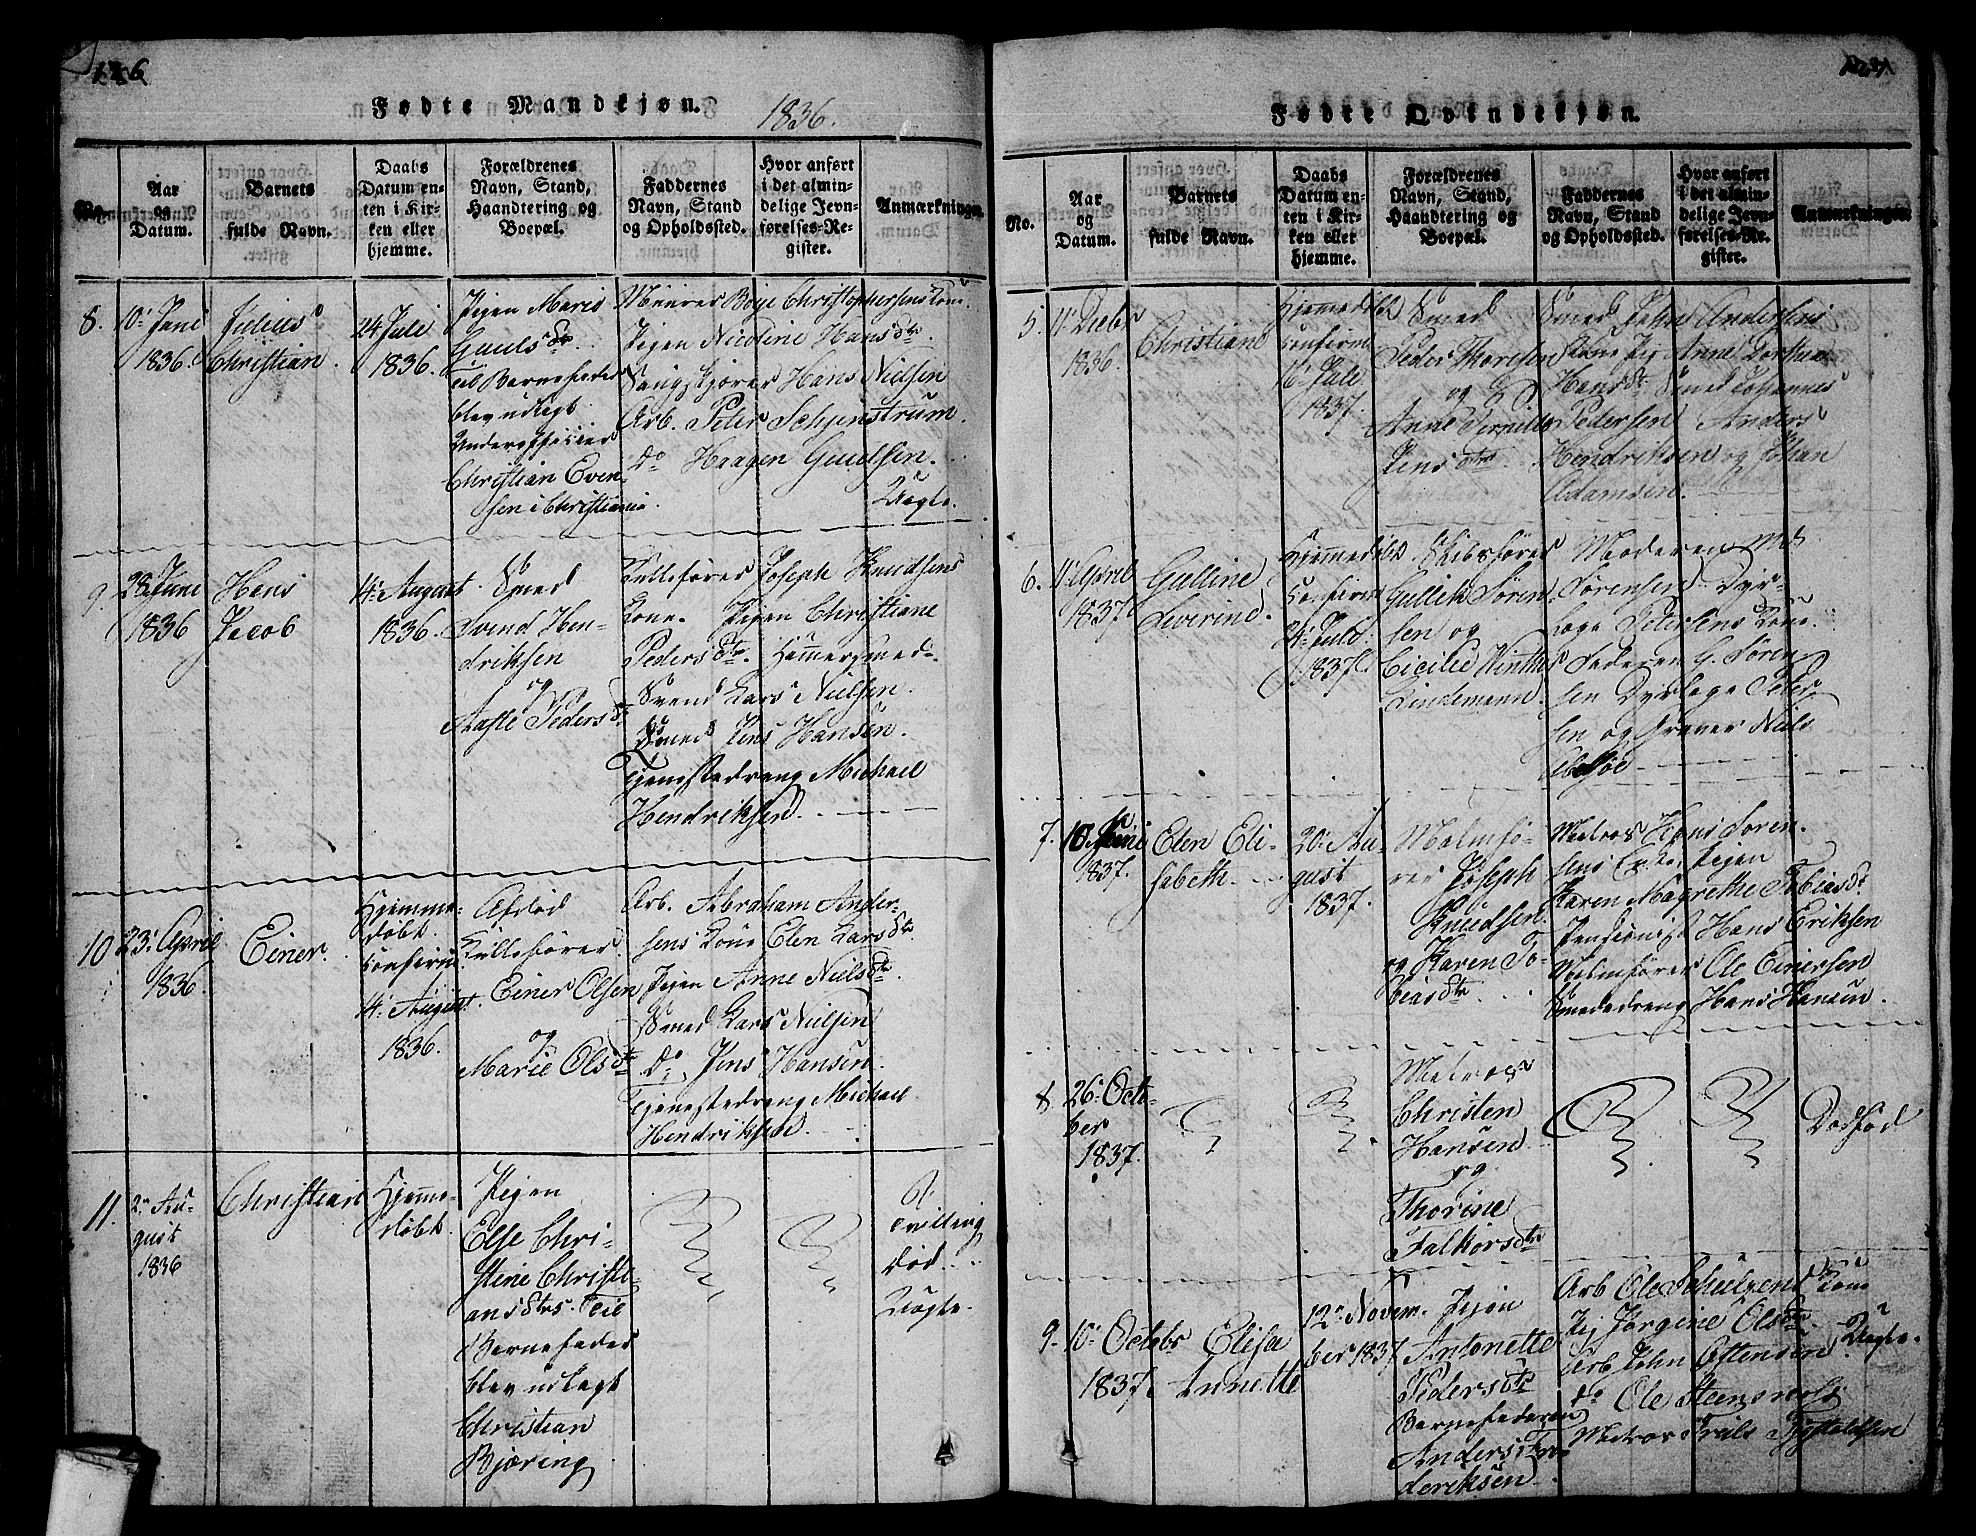 126
Fødte Mandkjøn. 1836.
No.
Aar
og
Datum.
Barnets
fulde Navn.
Daabs
Datum en-
ten i Kir-
ken eller
hjemme.
Forældrenes
Navn, Stand,
Haandtering og
Boepæl.
Faddernes
Navn, Stand
og Opholdssted.
Hvor anført
i det almin-
delige Jevn-
førelses-Re-
gister.
Anmærkninger.
8.
10 Juni
1836.
Julius
Christian
24 Juli
1836.
Pigen Marie
Guulsdtr.
til Barnefader
blev udlagt
Underofficier
Christian Even-
sen i Christiania
Muurer Boye Christophersens Kone
Pigen Nicoline Hansdtr.
Hans Nielsen
Arb. Peter Schjenstrum.
Do Haagen Guulsen.
Uægte.
9.
28 Juni
1836
Hans
Jacob
14 August
1836.
Smed
Svend Hen-
driksen
og
Aasle Pedersdtr
Kulkjører Joseph Knudsens
Kone. Pigen Christiane
Pedersdtr. Hammersmed-
Svend Lars Nielsen.
Smed Jens Hansen.
Tjenestedreng Michael
Hendriksen.
10
23 April
1836.
Einer.
Hjemme-
døbt.
Confirm.
14 August.
1836.
Afdød
Kulkjører
Einer Olsen
og
Marie Olsdtr
Arb. Abraham
sens Kone Elen Larsdtr
Pigen Anne Nielsdtr.
Smed Lars Nielsen
Do. Jens Hansen.
Tjenestedreng Michael
Hendriksen.
11.
2 Au-
gust
1836
Christian
Hjemme-
døbt.
Pigen
Else Chri-
stine Christi-
ansdtrs. Til
Barnefader
blev udlagt
Christian
Bjøring
Tvilling
død.
Uægte.
Fødte Qvindekjøn.
No.
Aar
og
Datum.
Barnets
fulde Navn.
Daabs
Datum en-
ten i Kir-
ken eller
hjemme.
Forældrenes
Navn, Stand,
Haandtering og
Boepæl.
Faddernes
Navn, Stand
og Opholdssted.
Hvor anført
i det almin-
delige Jevn-
førelses-Re-
gister.
Anmærkninger
5.
11 Decbr
1836.
Christiane
Hjemmedøbt
Confirm
16 Juli
1837.
Smed
Peder Thoresen
og
Anne Pernille
Jensdtr.
Smed John Andersens
Kone Pig Anne Dorthea
Hansdtr Smed Johannes
Pedersen Anders
Hendriksen og Johan
Adamsen.
6.
11 April
1837.
Gulline
Severine.
Hjemmedøbt
Confirm
24 Juli
1837.
Skibsfører
Gullik Søren-
sen og
Cicilie Winther
Lindemann.
Moderen M.
Sørensen. Dyr-
læge Petersens Kone.
Faderen G. Søren-
sen Dyrlæge Peter-
sen og Graver Niels
7.
10 Juni
1837.
Elen Eli-
sabeth.
20 Au-
gust
1837.
Malmfø-
rer Joseph
Knudsen
og Karen To-
biasdtr.
Matros Hans Søren-
sens Enke. Pigen
Karen Magrethe Tobiasdtr
Pensionist Hans Eriksen
Malmfører Ole Einersen
Smededreng Hans Hansen.
8.
26 Octo-
ber
1837.
Matros
Christen
Hansen
og
Thorine
Falkorsdtr
Dødfød
9.
10 Octobr
1837.
Elisa
Annette
12 Novem-
ber 1837
Pigen
Antonette
Pedersdtr
Barnefaderen
Anders Fre-
deriksen.
Arb Ole Kone
Pig Jørgine Olsdtr.
Arb John Estensen
do Ole Steensvold
Matros Truls
Uægte.